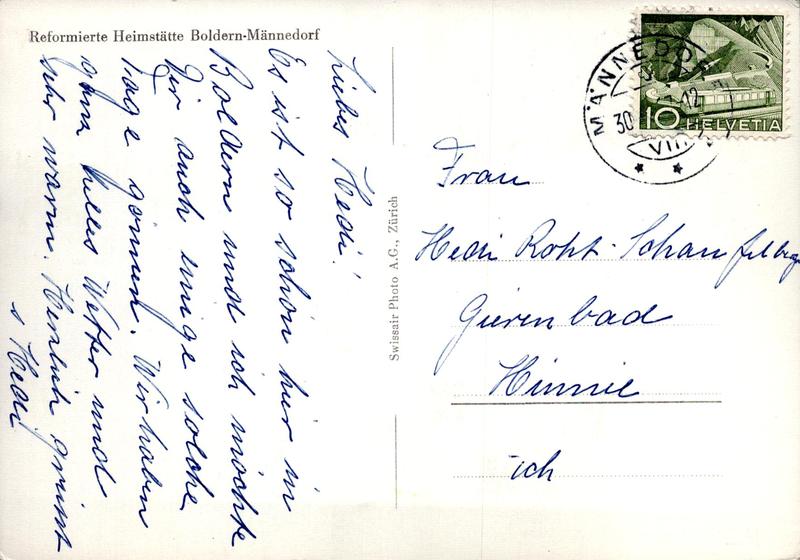 Reformierte Heimstätte Boldern-Männedorf
Liebes Hedi!
Es ist so schön hier in
Boldern und ich möchte
Dir auch einige solche
Tage gönnen. Wir haben
ganz helles Wetter und
sehr warm. Herzlich grüsst
s Hedi
Swissair Photo A.G., Zürich
MÄNNEDORF
30
12
VIII
10 HELVETIA
Frau
Hedi
Girenbad
Hinwil
ich